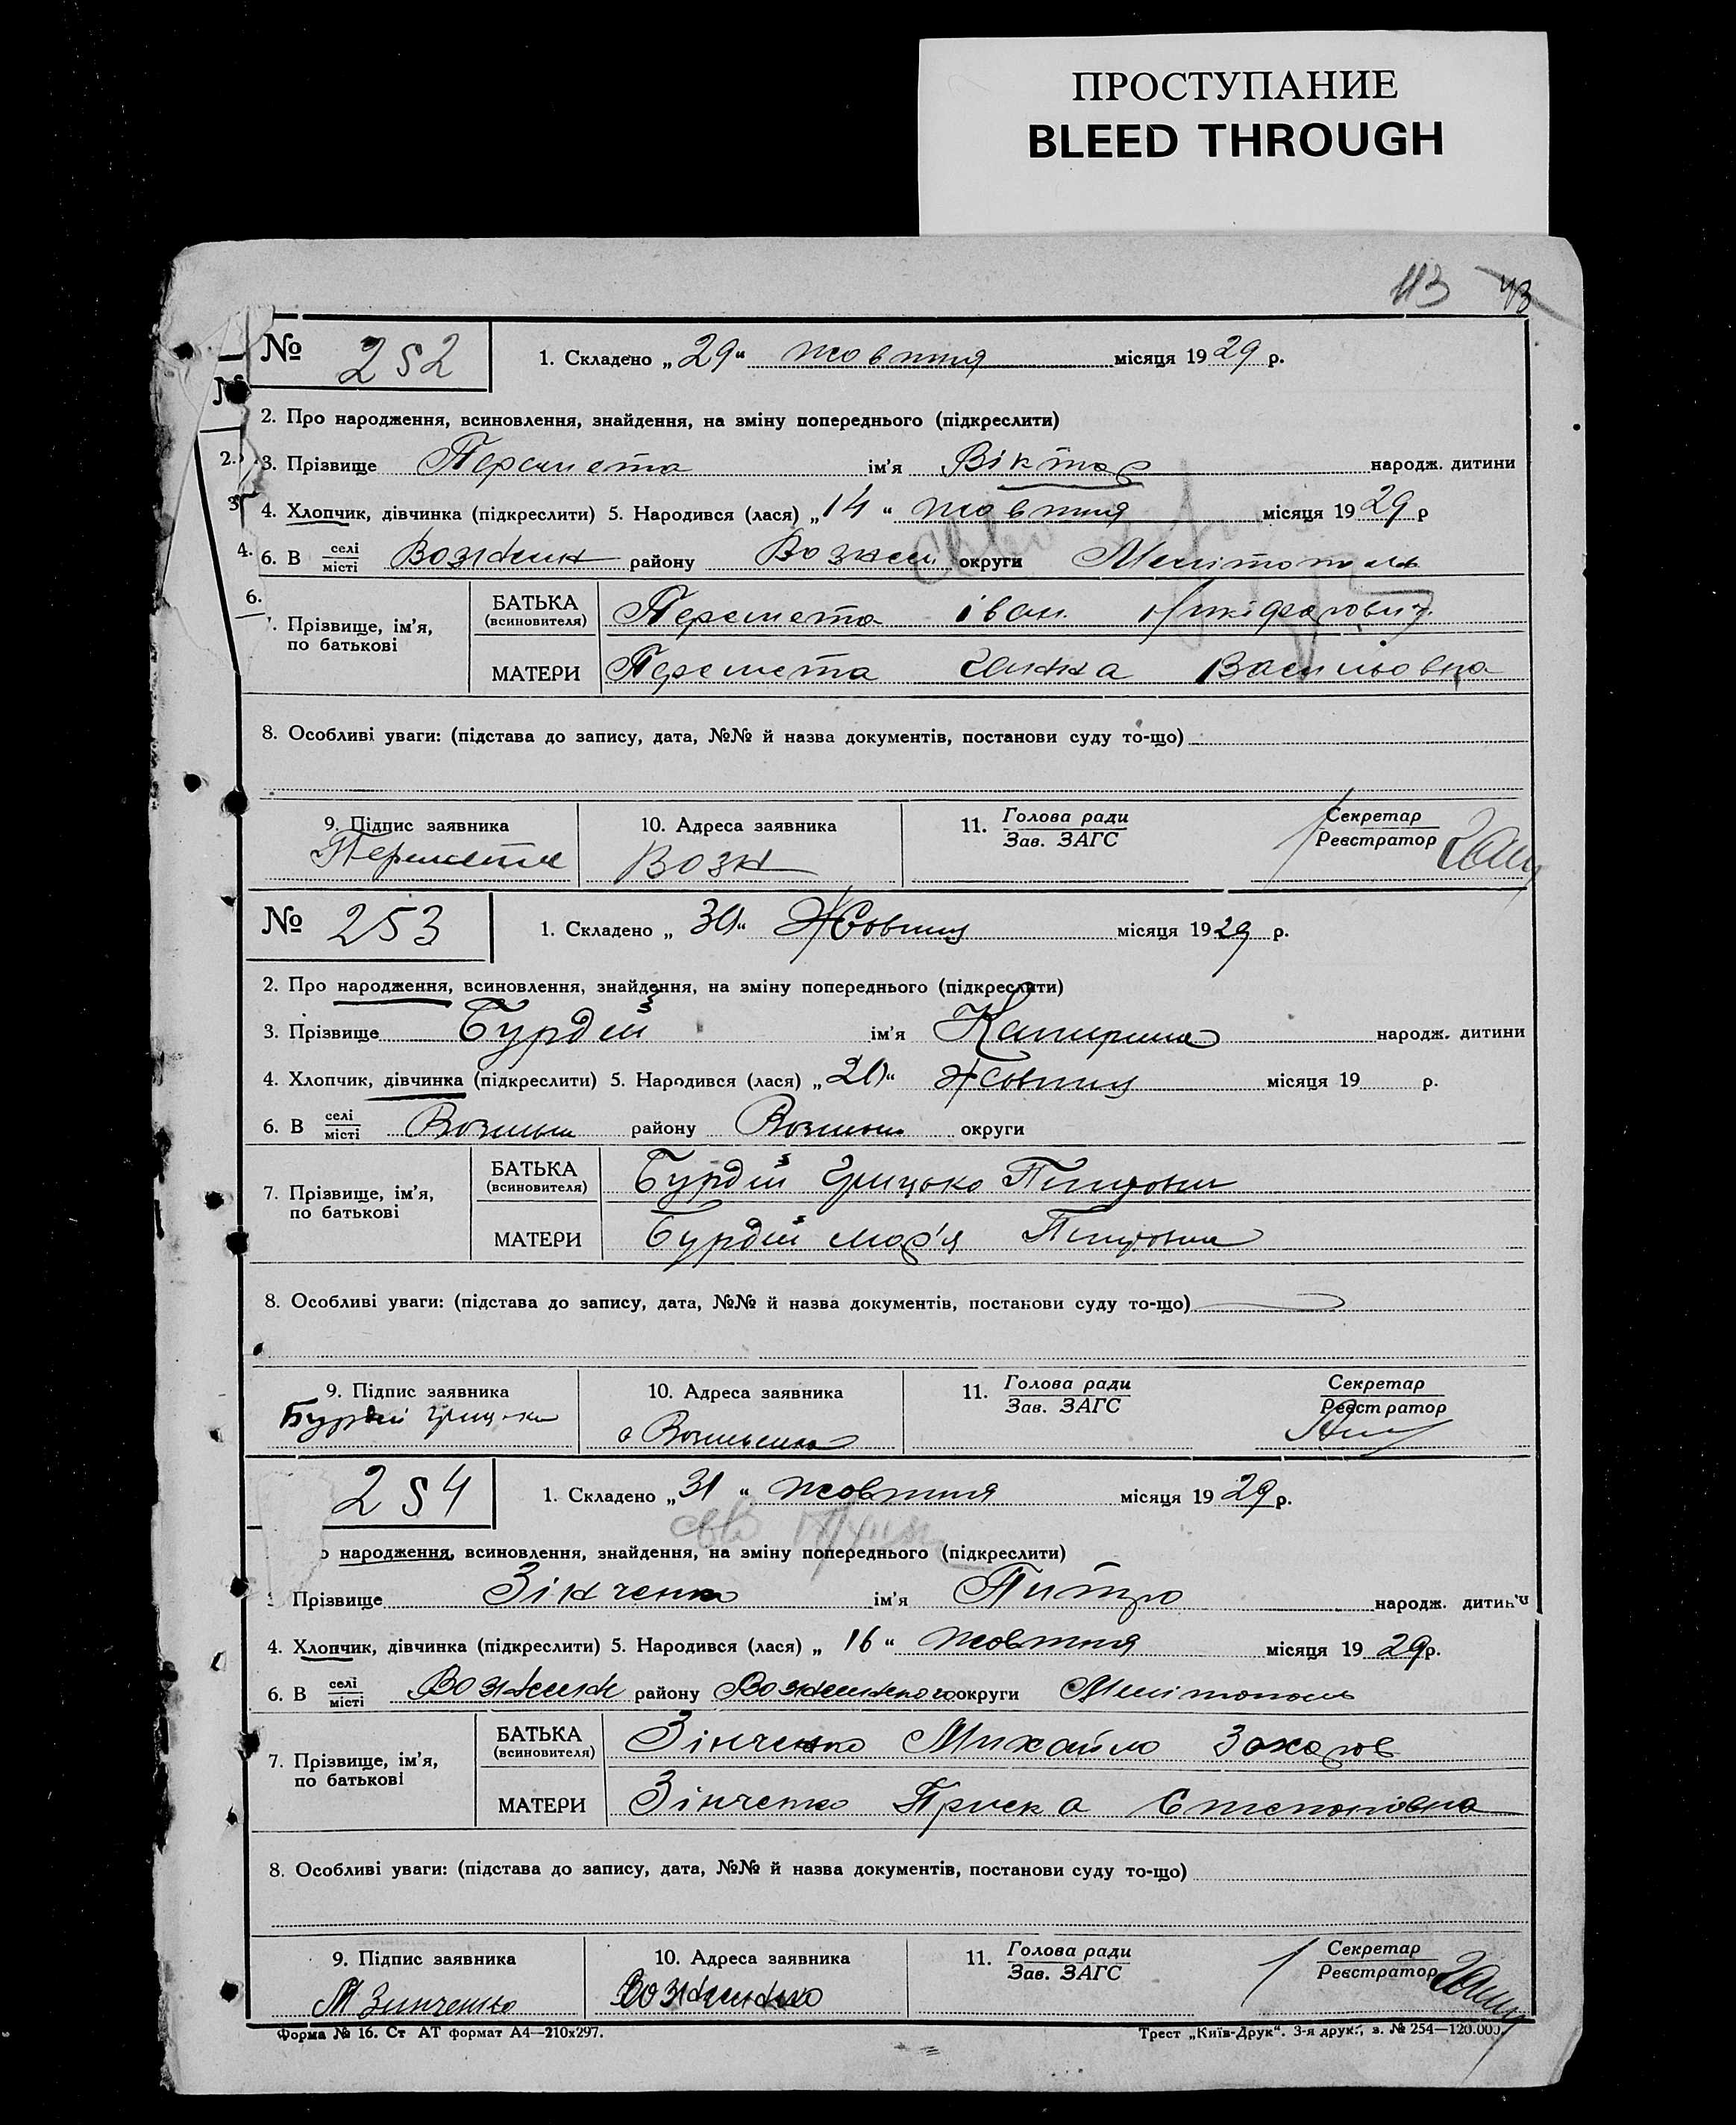 ПРОСТУПАНИЕ
BLEED THROUGH
113 43
№ 252 1. Складено „29“ жовтня місяця 1929 р.
2. Про народження, всиновлення, знайдення, на зміну попереднього (підкреслити)
3. Прізвище Перемета ім'я Віктор народж. дитини
4. Хлопчик, дівчинка (підкреслити) 5. Народився (лася) „14“ жовтня місяця 1929 р
6. В селі місті району округи Мелітополь
7. Прізвище, ім'я, по батькові
БАТЬКА (всиновителя) Перемета Іван
МАТЕРИ Перемета Васильовна
8. Особливі уваги: (підстава до запису, дата, №№ й назва документів, постанови суду то-що)
9. Підпис заявника 10. Адреса заявника 11. Голова ради Зав. ЗАГС Секретар Реєстратор
Возн
№ 253 1. Складено „30“ Жовтня місяця 1929 р.
2. Про народження, всиновлення, знайдення, на зміну попереднього (підкреслити)
3. Прізвище Бурдій ім'я Катирина народж. дитини
4. Хлопчик, дівчинка (підкреслити) 5. Народився (лася) „20“ Жовтня місяця 19 р.
6. В селі місті району округи
7. Прізвище, ім'я, по батькові
БАТЬКА (всиновителя) Бурдій Грицько
МАТЕРИ Бурдій Мар'я
8. Особливі уваги: (підстава до запису, дата, №№ й назва документів, постанови суду то-що)
9. Підпис заявника 10. Адреса заявника 11. Голова ради Зав. ЗАГС Секретар Реєстратор
Бурдій Грицько
254 1. Складено „31“ жовтня місяця 1929 р.
народження, всиновлення, знайдення, на зміну попереднього (підкреслити)
Прізвище Зінченко ім'я Питро народж. дитини
4. Хлопчик, дівчинка (підкреслити) 5. Народився (лася) „16“ жовтня місяця 1929 р.
6. В селі місті району округи Мелітополь
7. Прізвище, ім'я, по батькові
БАТЬКА (всиновителя) Зінченко Михайло Захаров
МАТЕРИ Зінченко Приска Степановна
8. Особливі уваги: (підстава до запису, дата, №№ й назва документів, постанови суду то-що)
9. Підпис заявника 10. Адреса заявника 11. Голова ради Зав. ЗАГС Секретар Реєстратор
М Зинченко
Форма № 16. Ст АТ формат А4—210х297. Трест „Київ-Друк“. 3-я друк., з. № 254—120.000.